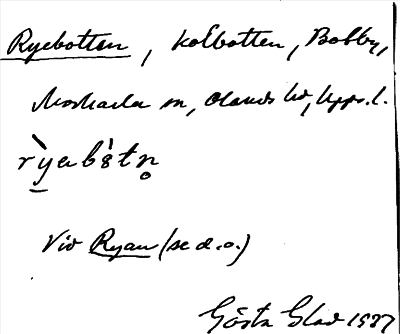 Ryebotten, kolbotten, Bobby,
Morkarla sn, Olands hd, Upps. l.
rỳeb㝵tn̥
Vid Ryan (se d. o.)
Gösta Glad 1937